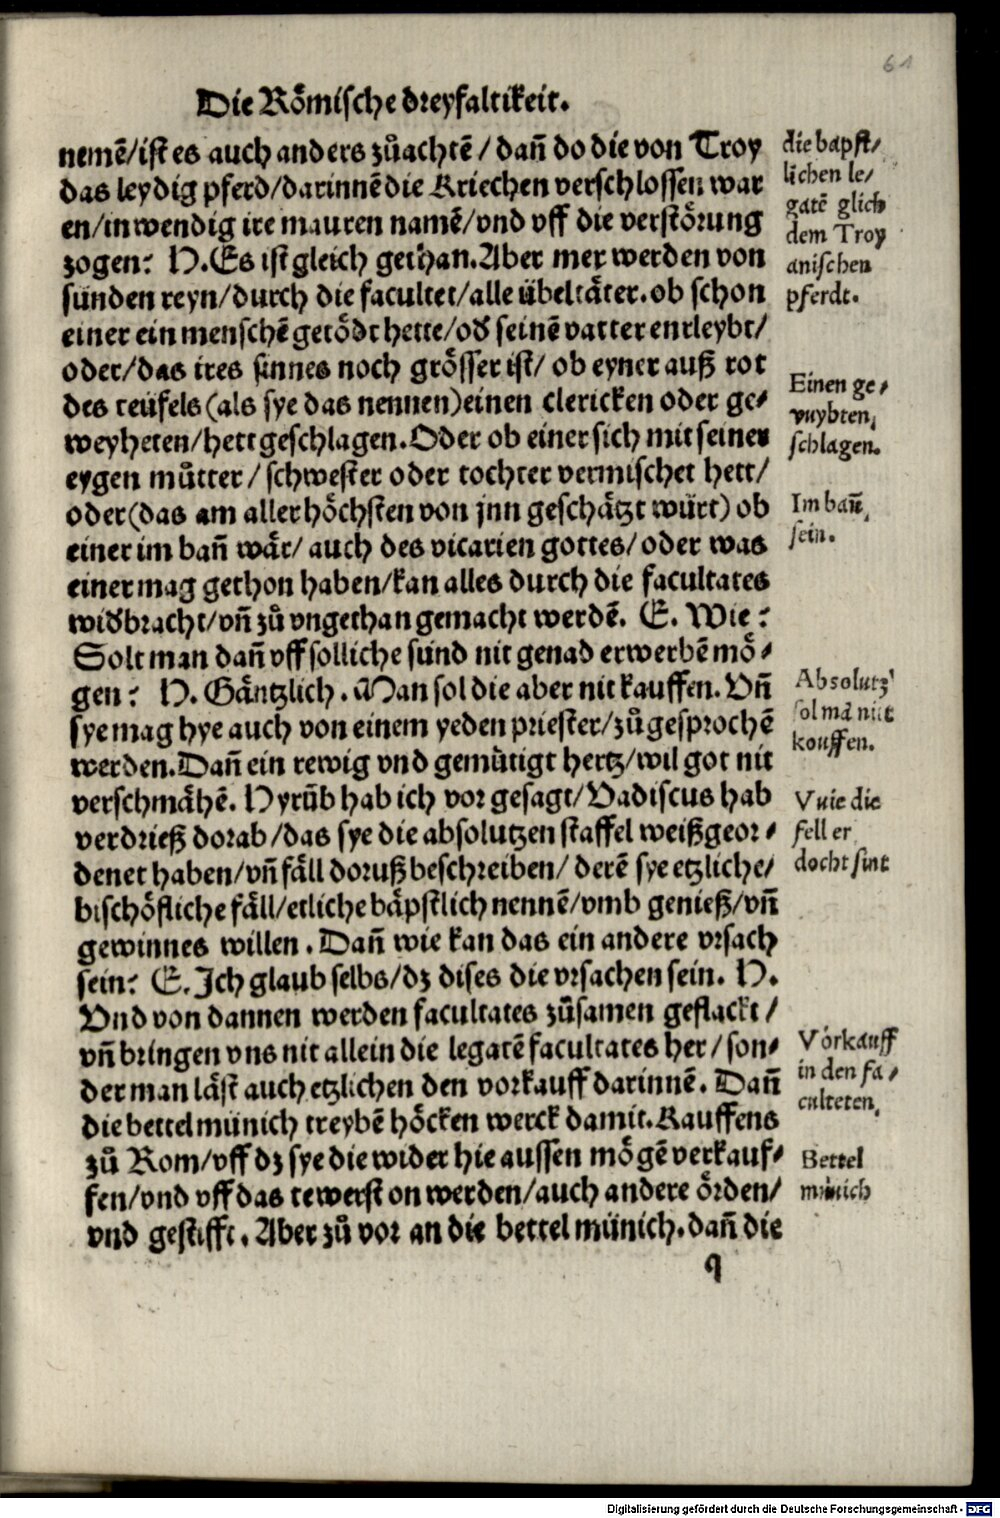 61
Die Rőmische dreyfaltikeit.
nemē/ist es auch anders zůachtē/dañ do die von Troy
das leydig pferd/darinnē die Kriechen verschlossen war
en/inwendig ire mauren namē/vnd vff die verstőrung
zogen? H. Es ist gleich gethan. Aber mer werden von
sünden reyn/durch die facultet/alle übeltåter. ob schon
einer ein menschē getődt hette/oð seinē vatter entleybt/
oder/das ires sinnes noch grősser ist/ob eyner auß rot
des teüfels (als sye das nennen) einen clericken oder ge⸗
weyheten/hett geschlagen. Oder ob einer sich mit seiner
eygen můtter/schwester oder tochter vermischet hett/
oder (das am aller hőchsten von jnn geschåtzt würt) ob
einer im bañ wår/auch des vicarien gottes/oder was
einer mag gethon haben/kan alles durch die facultates
widbracht/vñ zů vngethan gemacht werdē. E. Wie?
Solt man dañ vff solliche sünd nit genad erwerbē mő⸗
gen? H. Gåntzlich. Man sol die aber nit kauffen. Vñ
sye mag hye auch von einem yeden priester/zůgesprochē
werden. Dañ ein rewig vnd gemůtigt hertz/wil got nit
verschmåhē. Hyrüb hab ich vor gesagt/Vadiscus hab
verdrieß dorab/das sye die absolutzen staffel weiß geor⸗
denet haben/vñ fåll doruß beschreiben/derē sye etzliche/
bischőfliche fåll/etliche båpstlich nennē/vmb genieß/vñ
gewinnes willen. Dañ wie kan das ein andere vrsach
sein? E. Ich glaub selbs/dz dises die vrsachen sein. H.
Vnd von dannen werden facultates zůsamen geflackt/
vñ bringen vns nit allein die legatē facultates her/son⸗
der man låst auch etzlichen den vorkauff darinnē. Dañ
die bettel münich treybē hőcken werck damit. Kauffens
zů Rom/vff dz sye die wider hie aussen mőgē verkauf⸗
fen/vnd vff das tewerst on werden/auch andere őrden/
vnd gestifft. Aber zů vor an die bettel münich. dañ die
q
die båpst/
lichen le/
gatē glich
dem Troy
anischen
pferdt.
Einen ge/
vuybten
schlagen.
Im bañ
sein.
Absolutz
sol mā nit
kouffen.
Vuie die
fell er
docht sint
Vorkauff
in den fa/
culteten
Bettel
münich
Digitalisierung gefördert durch die Deutsche Forschungsgemeinschaft - DFG